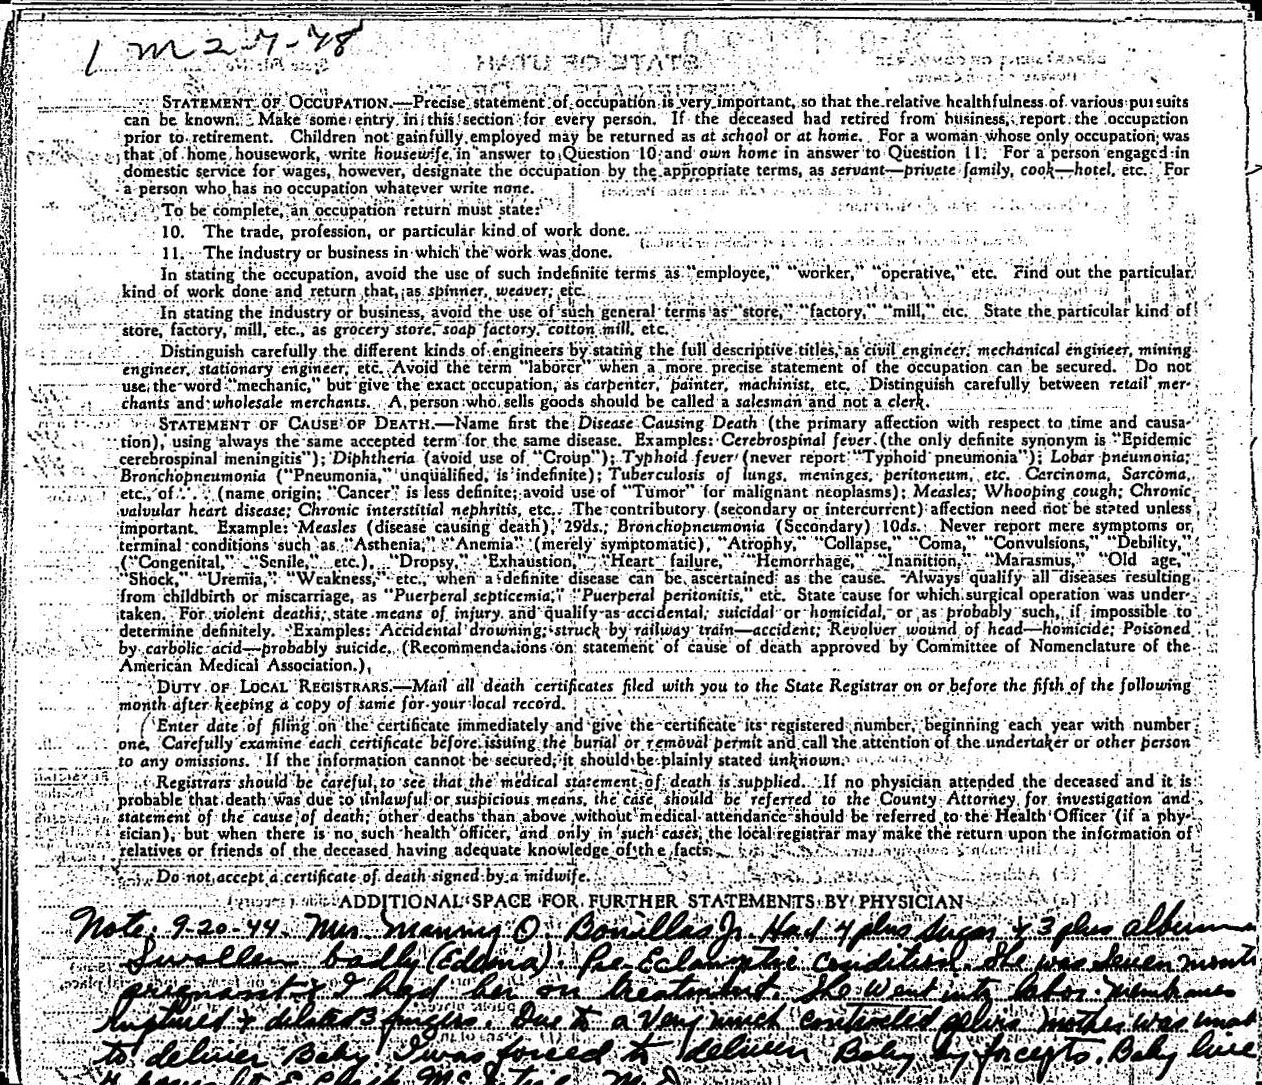 1 M 2-7-48
STATE OF UTAH
STATEMENT OF OCCUPATION.—Precise statement of occupation is very important, so that the relative healthfulness of various pursuits
can be known. Make some entry in this section for every person. If the deceased had retired from business, report the occupation
prior to retirement. Children not gainfully employed may be returned as at school or at home. For a woman whose only occupation was
that of home housework, write housewife in answer to Question 10 and own home in answer to Question 11. For a person engaged in
domestic service for wages, however, designate the occupation by the appropriate terms, as servant—private family, cook—hotel, etc. For
a person who has no occupation whatever write none.
To be complete, an occupation return must state:
10. The trade, profession, or particular kind of work done.
11. The industry or business in which the work was done.
In stating the occupation, avoid the use of such indefinite terms as "employee," "worker," "operative," etc. Find out the particular
kind of work done and return that, as spinner, weaver, etc.
In stating the industry or business, avoid the use of such general terms as "store," "factory," "mill," etc. State the particular kind of
store, factory, mill, etc., as grocery store, soap factory, cotton mill, etc.
Distinguish carefully the different kinds of engineers by stating the full descriptive titles, as civil engineer, mechanical engineer, mining
engineer, stationary engineer, etc. Avoid the term "laborer" when a more precise statement of the occupation can be secured. Do not
use the word "mechanic," but give the exact occupation, as carpenter, painter, machinist, etc. Distinguish carefully between retail mer-
chants and wholesale merchants. A person who sells goods should be called a salesman and not a clerk.
STATEMENT OF CAUSE OF DEATH.—Name first the Disease Causing Death (the primary affection with respect to time and causa-
tion), using always the same accepted term for the same disease. Examples: Cerebrospinal fever (the only definite synonym is "Epidemic
cerebrospinal meningitis"); Diphtheria (avoid use of "Croup"); Typhoid fever (never report "Typhoid pneumonia"); Lobar pneumonia;
Bronchopneumonia ("Pneumonia," unqualified, is indefinite); Tuberculosis of lungs, meninges, peritoneum, etc. Carcinoma, Sarcoma,
etc., of . . . (name origin; "Cancer" is less definite; avoid use of "Tumor" for malignant neoplasms); Measles; Whooping cough; Chronic
valvular heart disease; Chronic interstitial nephritis, etc. The contributory (secondary or intercurrent) affection need not be stated unless
important. Example: Measles (disease causing death), 29ds.; Bronchopneumonia (Secondary) 10ds. Never report mere symptoms or
terminal conditions such as "Asthenia," "Anemia" (merely symptomatic), "Atrophy," "Collapse," "Coma," "Convulsions," "Debility,"
("Congenital," "Senile," etc.), "Dropsy," "Exhaustion," "Heart failure," "Hemorrhage," "Inanition," "Marasmus," "Old age,"
"Shock," "Uremia," "Weakness," etc., when a definite disease can be ascertained as the cause. Always qualify all diseases resulting
from childbirth or miscarriage, as "Puerperal septicemia," "Puerperal peritonitis," etc. State cause for which surgical operation was under-
taken. For violent deaths, state means of injury and qualify as accidental, suicidal or homicidal, or as probably such, if impossible to
determine definitely. Examples: Accidental drowning; struck by railway train—accident; Revolver wound of head—homicide; Poisoned
by carbolic acid—probably suicide. (Recommendations on statement of cause of death approved by Committee of Nomenclature of the
American Medical Association.)
DUTY OF LOCAL REGISTRARS.—Mail all death certificates filed with you to the State Registrar on or before the fifth of the following
month after keeping a copy of same for your local record.
Enter date of filing on the certificate immediately and give the certificate its registered number, beginning each year with number
one. Carefully examine each certificate before issuing the burial or removal permit and call the attention of the undertaker or other person
to any omissions. If the information cannot be secured, it should be plainly stated unknown.
Registrars should be careful to see that the medical statement of death is supplied. If no physician attended the deceased and it is
probable that death was due to unlawful or suspicious means, the case should be referred to the County Attorney for investigation and
statement of the cause of death; other deaths than above without medical attendance should be referred to the Health Officer (if a phy-
sician), but when there is no such health officer, and only in such cases, the local registrar may make the return upon the information of
relatives or friends of the deceased having adequate knowledge of the facts.
Do not accept a certificate of death signed by a midwife.
ADDITIONAL SPACE FOR FURTHER STATEMENTS BY PHYSICIAN
Note: 9-20-44. Mrs Manny O. Bonillas Jr. Had 4 plus Sugar & 3 plus album
Swollen badly (Edema). Pre-Eclamptic condition. She was seven month
pregnant & I had her on treatment. She went into labor. membranes
ruptured & dilated 3 fingers. Due to a very much contracted pelvis mother was
to deliver Baby I was forced to deliver Baby by forceps. Baby live